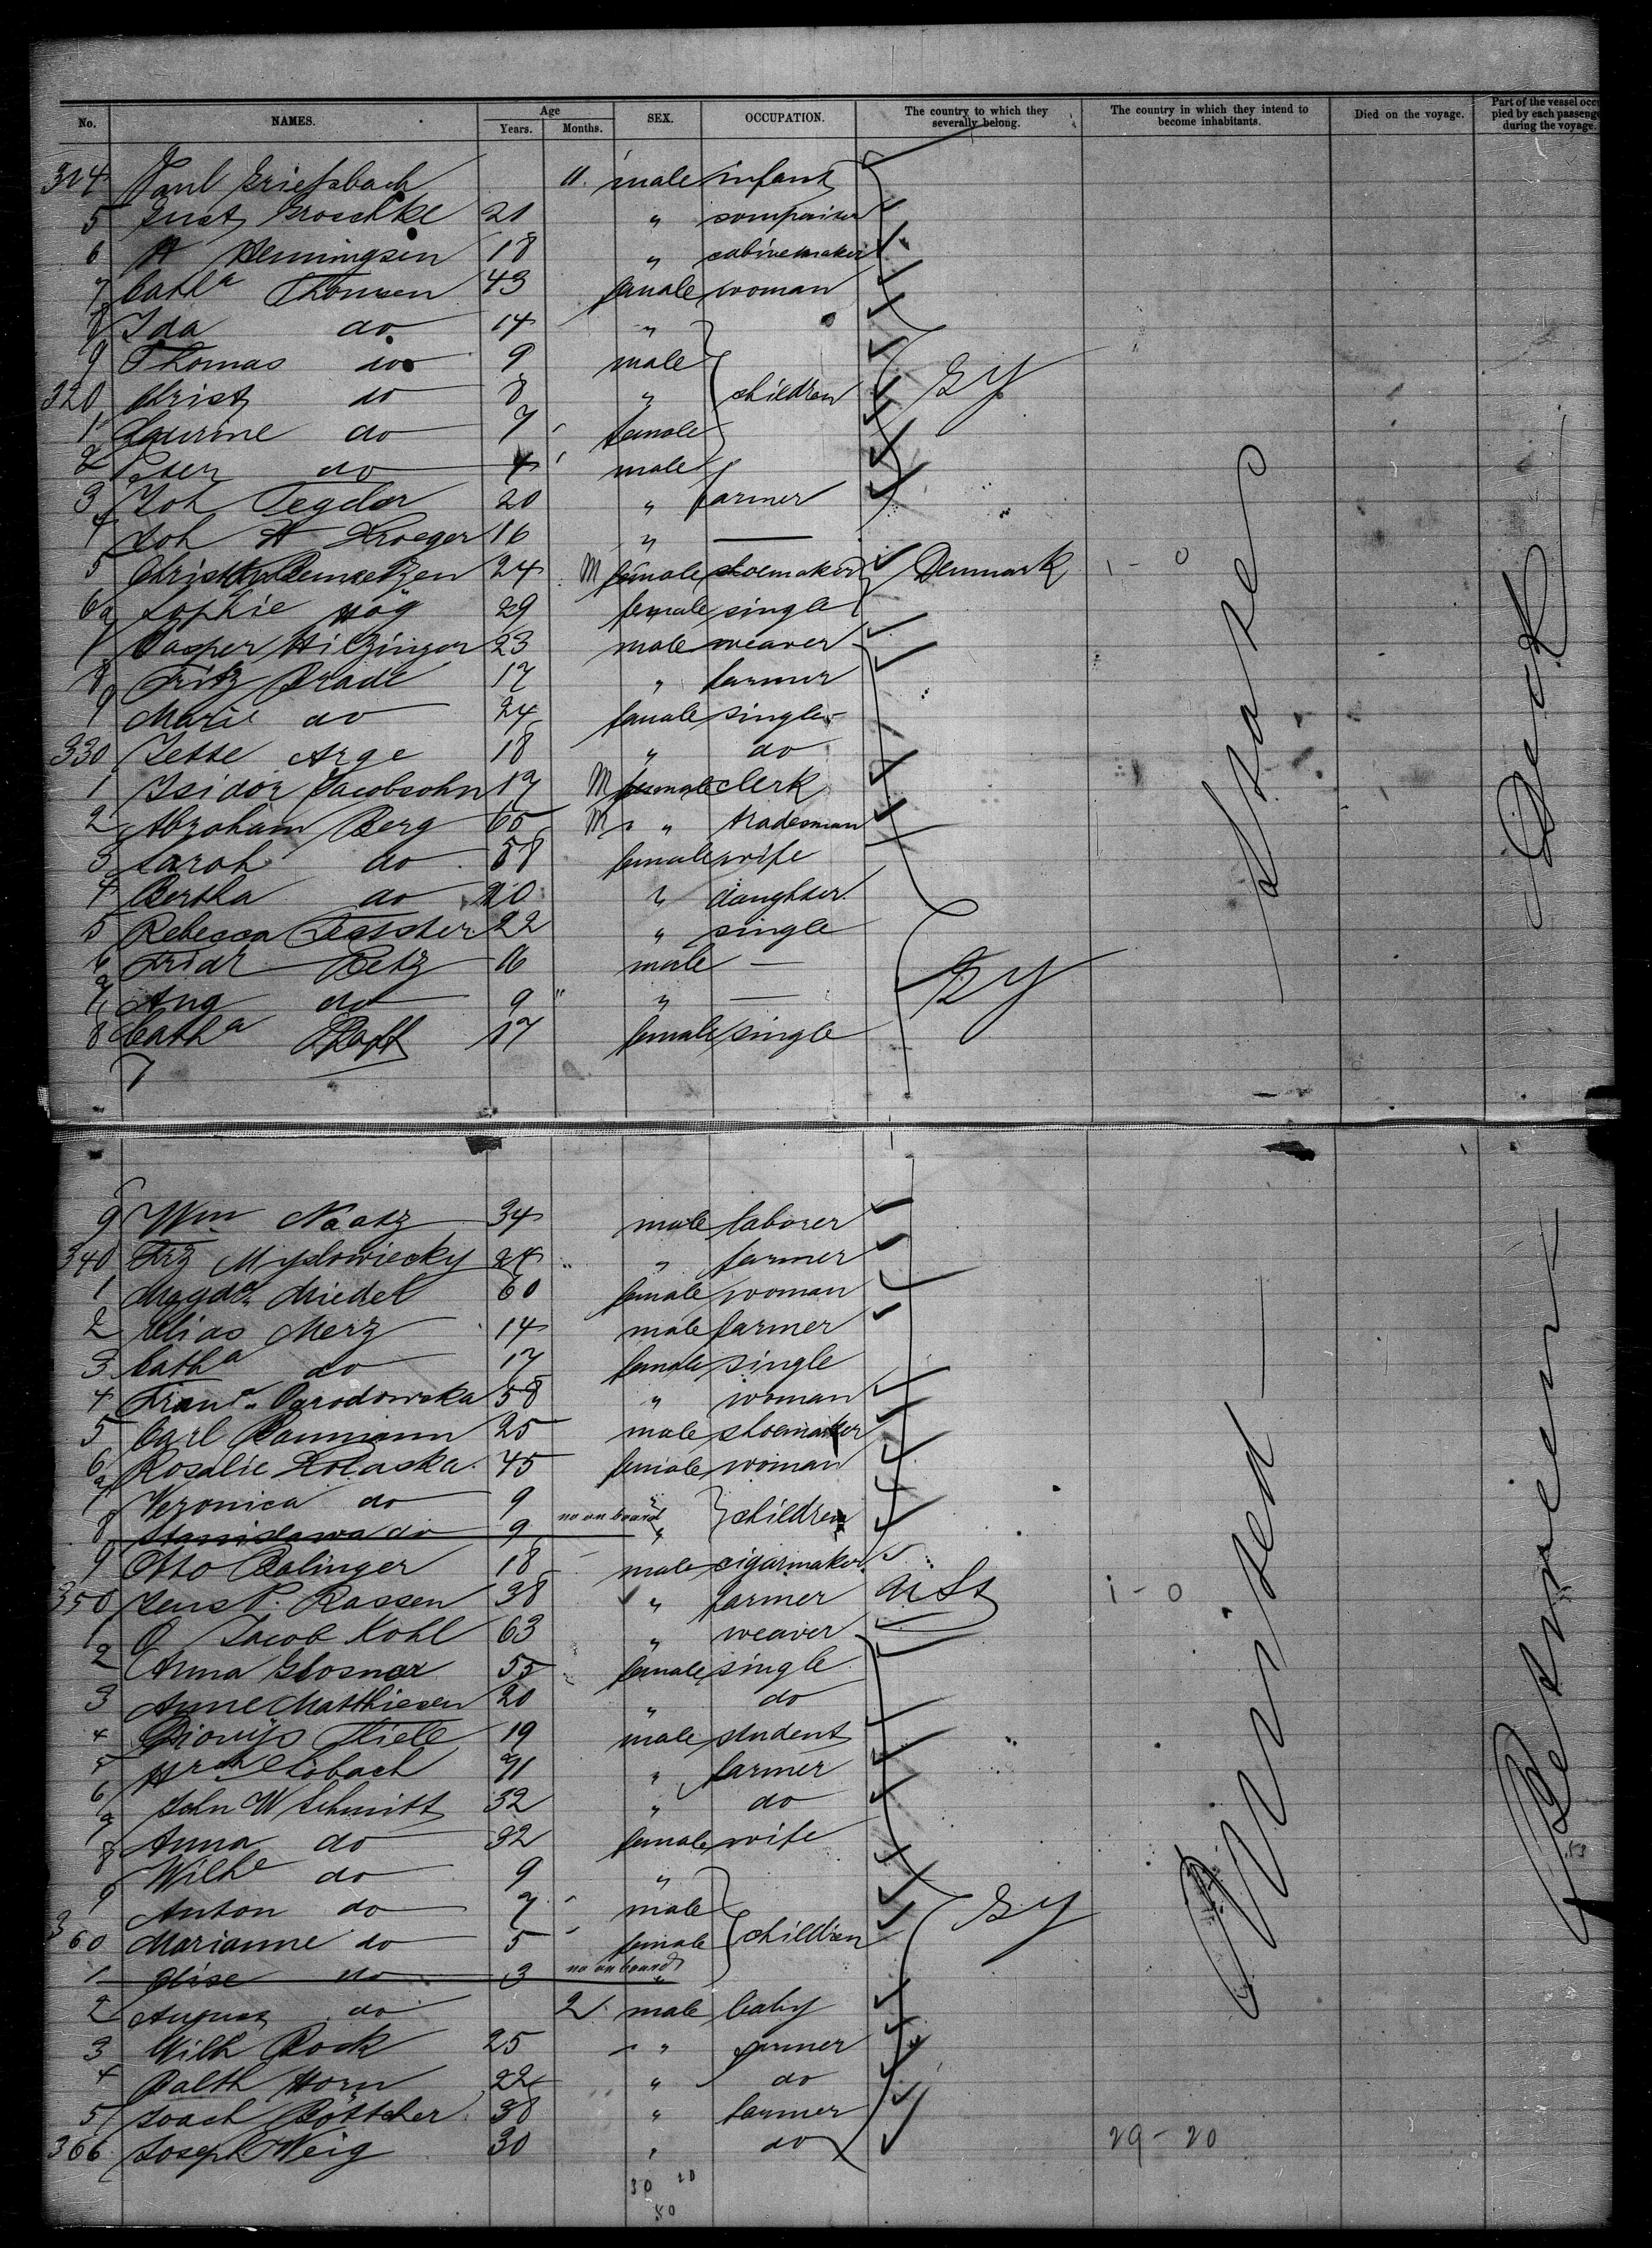 No. NAMES. Age Years. Months. SEX. OCCUPATION. The country to which they severally belong. The country in which they intend to become inhabitants. Died on the voyage. Part of the vessel occupied by each passenger during the voyage.
314 Paul Griefsbach 11. male infant
5 Gust Groschke 21 "
6 H Henningsen 18 " cabinetmaker
7 Catha Thomsen 43 female woman
8 Ida do 14 "
9 Thomas do 9 male
320 Christ do 8 " children Gy
1 Laurine do 7 female
2 Peter do 4 male
3 Joh Tegeler 20 " farmer
4 Joh H Kroeger 16 " —
5 Christ 24 M female shoemaker Denmark 1 - 0
6 Sophie Hög 29 female single
7 Casper Hilzinger 23 male weaver
8 Fritz Brade 17 " farmer
9 Marie do 24 female single
330 Jette Arge 18 " do
1 Isidor Jacobsohn 17 M female clerk
2 Abraham Berg 65 M " tradesman
3 Sarah do 58 female wife
4 Bertha do 20 " daughter
5 Rebecca 22 " single
6 Friedr Petz 16 male —
7 Aug do 9 " — Gy
8 Catha Rapp 17 female single
9 Wm Naatz 34 male laborer
340 Frz Myslowiecky 24 " farmer
1 Magda Miedel 60 female woman
2 Elias Merz 14 male farmer
3 Catha do 17 female single
4 Franca Ogrodowska 58 " woman
5 Carl Baumann 25 male shoemaker
6 Rosalie Kolaska 45 female woman
7 Veronica do 9 " children
8 Stanislawa do 9 no on board "
9 Otto Balinger 18 male cigarmaker
350 Jens P. Rassen 38 " farmer U St 1 - 0
1 Jacob Kohl 63 " weaver
2 Anna Glosner 55 female single
3 Anne Matthiesen 20 " do
4 Dionys Thiele 19 male student
5 Hrch Elsbach 21 " farmer
6 John W Schmitt 32 " do
7 Anna do 32 female wife
8 Wilhe do 9 "
9 Anton do 7 male Gy
360 Marianne do 5 female children
1 Elise do 3 no on board "
2 August do 2 male baby
3 Wilh Bock 25 " farmer
4 Balth Horn 22 " do
5 Joach Böttcher 38 " farmer
366 Joseph Weig 30 " do 29 - 20
30 20
50
United States
Between Deck